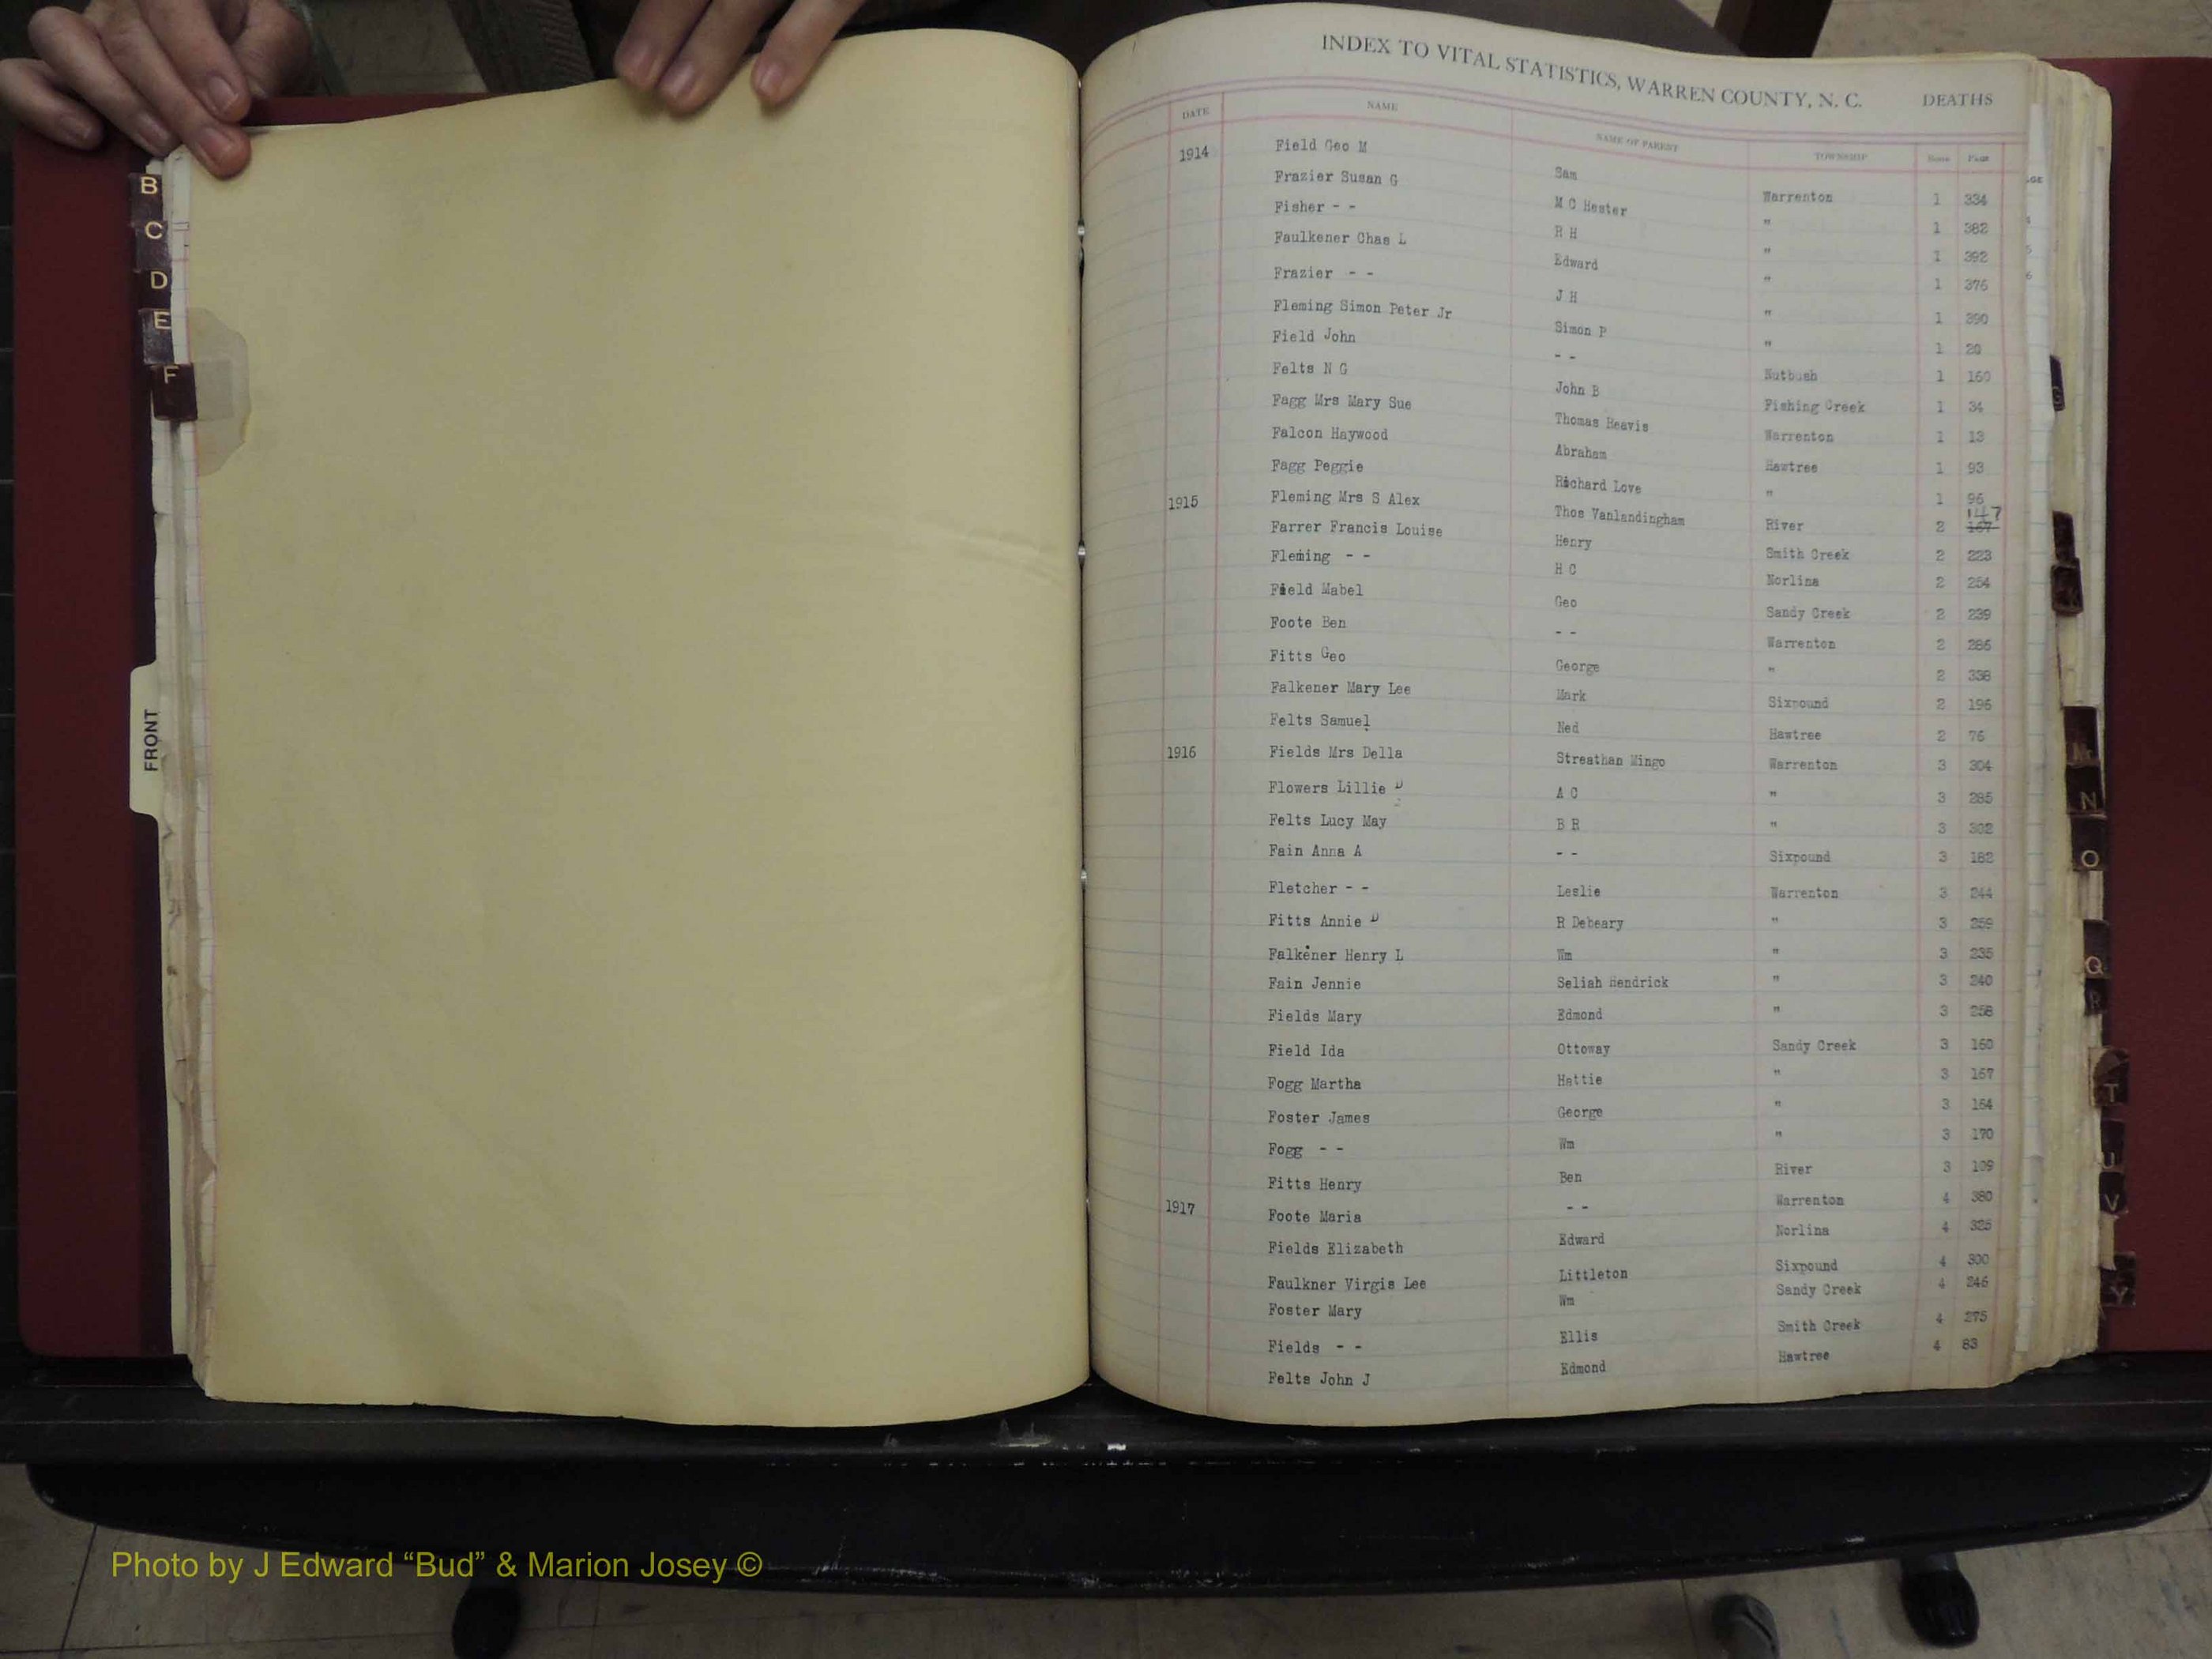 INDEX TO VITAL STATISTICS, WARREN COUNTY, N. C. DEATHS
DATE NAME NAME OF PARENT TOWNSHIP Book Page
1914 Field Geo M Sam Warrenton 1 334
Frazier Susan G M C Hester " 1 382
Fisher - - R H " 1 392
Faulkener Chas L Edward " 1 376
Frazier - - J H " 1 390
Fleming Simon Peter Jr Simon P " 1 20
Field John - - Nutbush 1 160
Felts N G John B Fishing Creek 1 34
Fagg Mrs Mary Sue Thomas Reavis Warrenton 1 13
Falcon Haywood Abraham Hawtree 1 93
Fagg Peggie Richard Love " 1 96
1915 Fleming Mrs S Alex Thos Vanlandingham River 2 147
Farrer Francis Louise Henry Smith Creek 2 223
Fleming - - H C Norlina 2 254
Field Mabel Geo Sandy Creek 2 239
Foote Ben - - Warrenton 2 286
Fitts Geo George " 2 338
Falkener Mary Lee Mark Sixpound 2 196
Felts Samuel Ned Hawtree 2 76
1916 Fields Mrs Della Streathan Mingo Warrenton 3 304
Flowers Lillie D A C " 3 285
Felts Lucy May B R " 3 302
Fain Anna A - - Sixpound 3 182
Fletcher - - Leslie Warrenton 3 244
Fitts Annie D R Debeary " 3 259
Falkener Henry L Wm " 3 235
Fain Jennie Seliah Hendrick " 3 240
Fields Mary Edmond " 3 258
Field Ida Ottoway Sandy Creek 3 160
Fogg Martha Hattie " 3 167
Foster James George " 3 164
Fogg - - Wm " 3 170
Fitts Henry Ben River 3 109
1917 Foote Maria - - Warrenton 4 380
Fields Elizabeth Edward Norlina 4 325
Faulkner Virgis Lee Littleton Sixpound 4 300
Foster Mary Wm Sandy Creek 4 246
Fields - - Ellis Smith Creek 4 275
Felts John J Edmond Hawtree 4 83
B
C
D
E
F
FRONT
G
K
N
O
Q
R
T
U
V
Y
Photo by J Edward “Bud” & Marion Josey ©